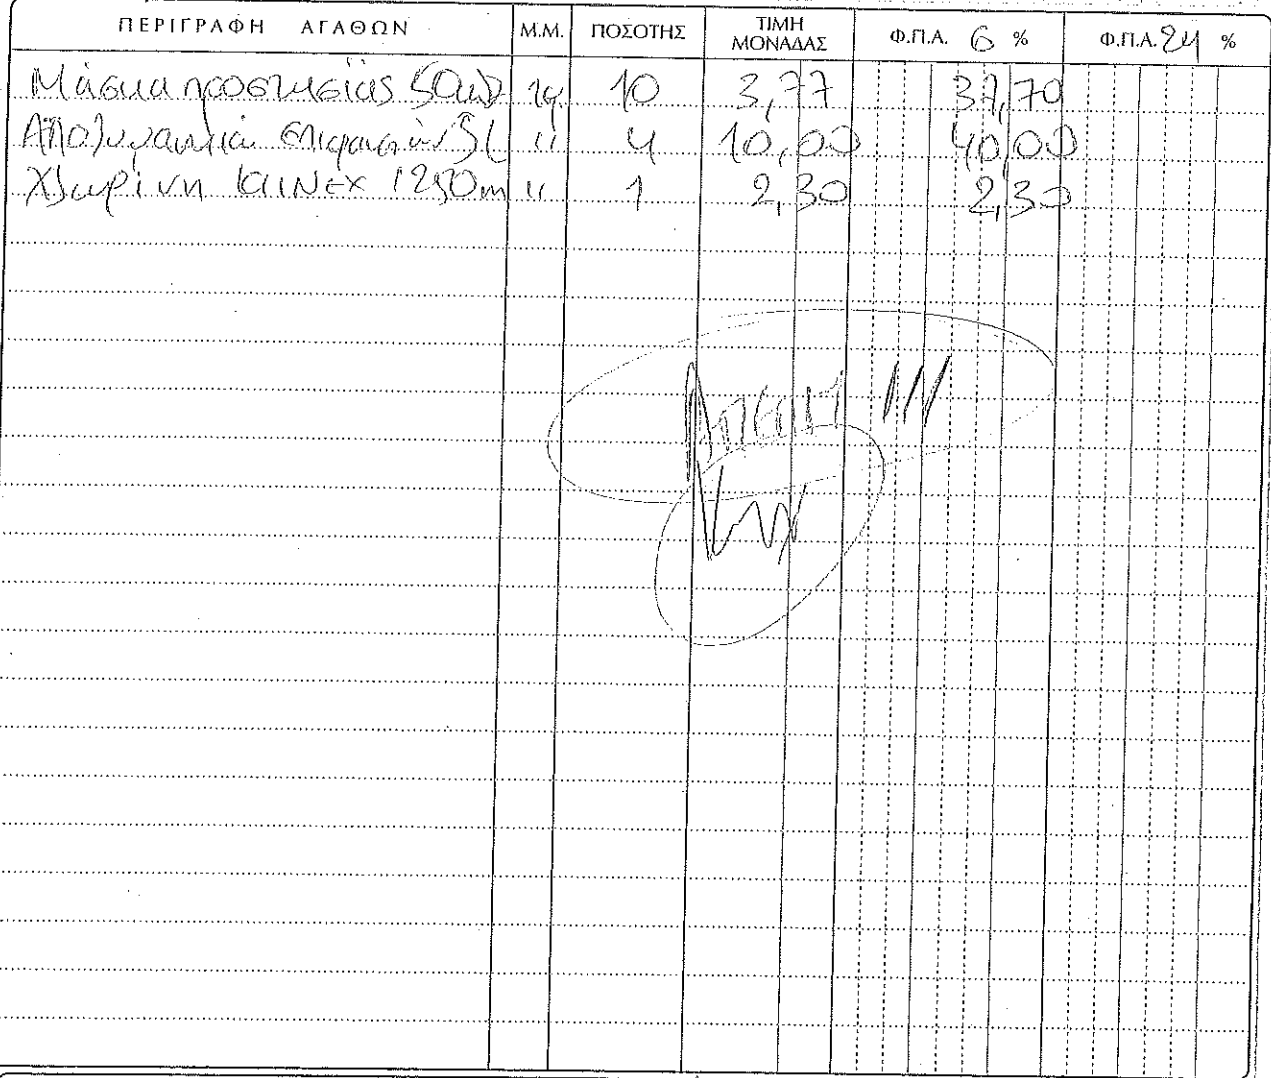 ΠΕΡΙΓΡΑΦΗ ΑΓΑΘΩΝ Μ.Μ. ΠΟΣΟΤΗΣ ΤΙΜΗ ΜΟΝΑΔΑΣ Φ.Π.Α. 6 % Φ.Π.Α. 24 %
Μάσκα προστασίας 10 3,77 37,70
Απολυμαντικό επιφανειών 5L 〃 4 10,00 40,00
Χλωρίνη KLINEX 1250m 〃 1 2,30 2,30